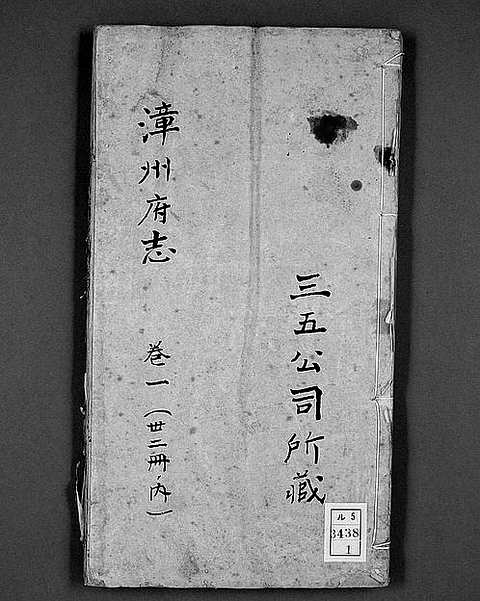 三五公司所藏
漳州府志 卷一(丗二冊ノ内)
ル5
3438
1